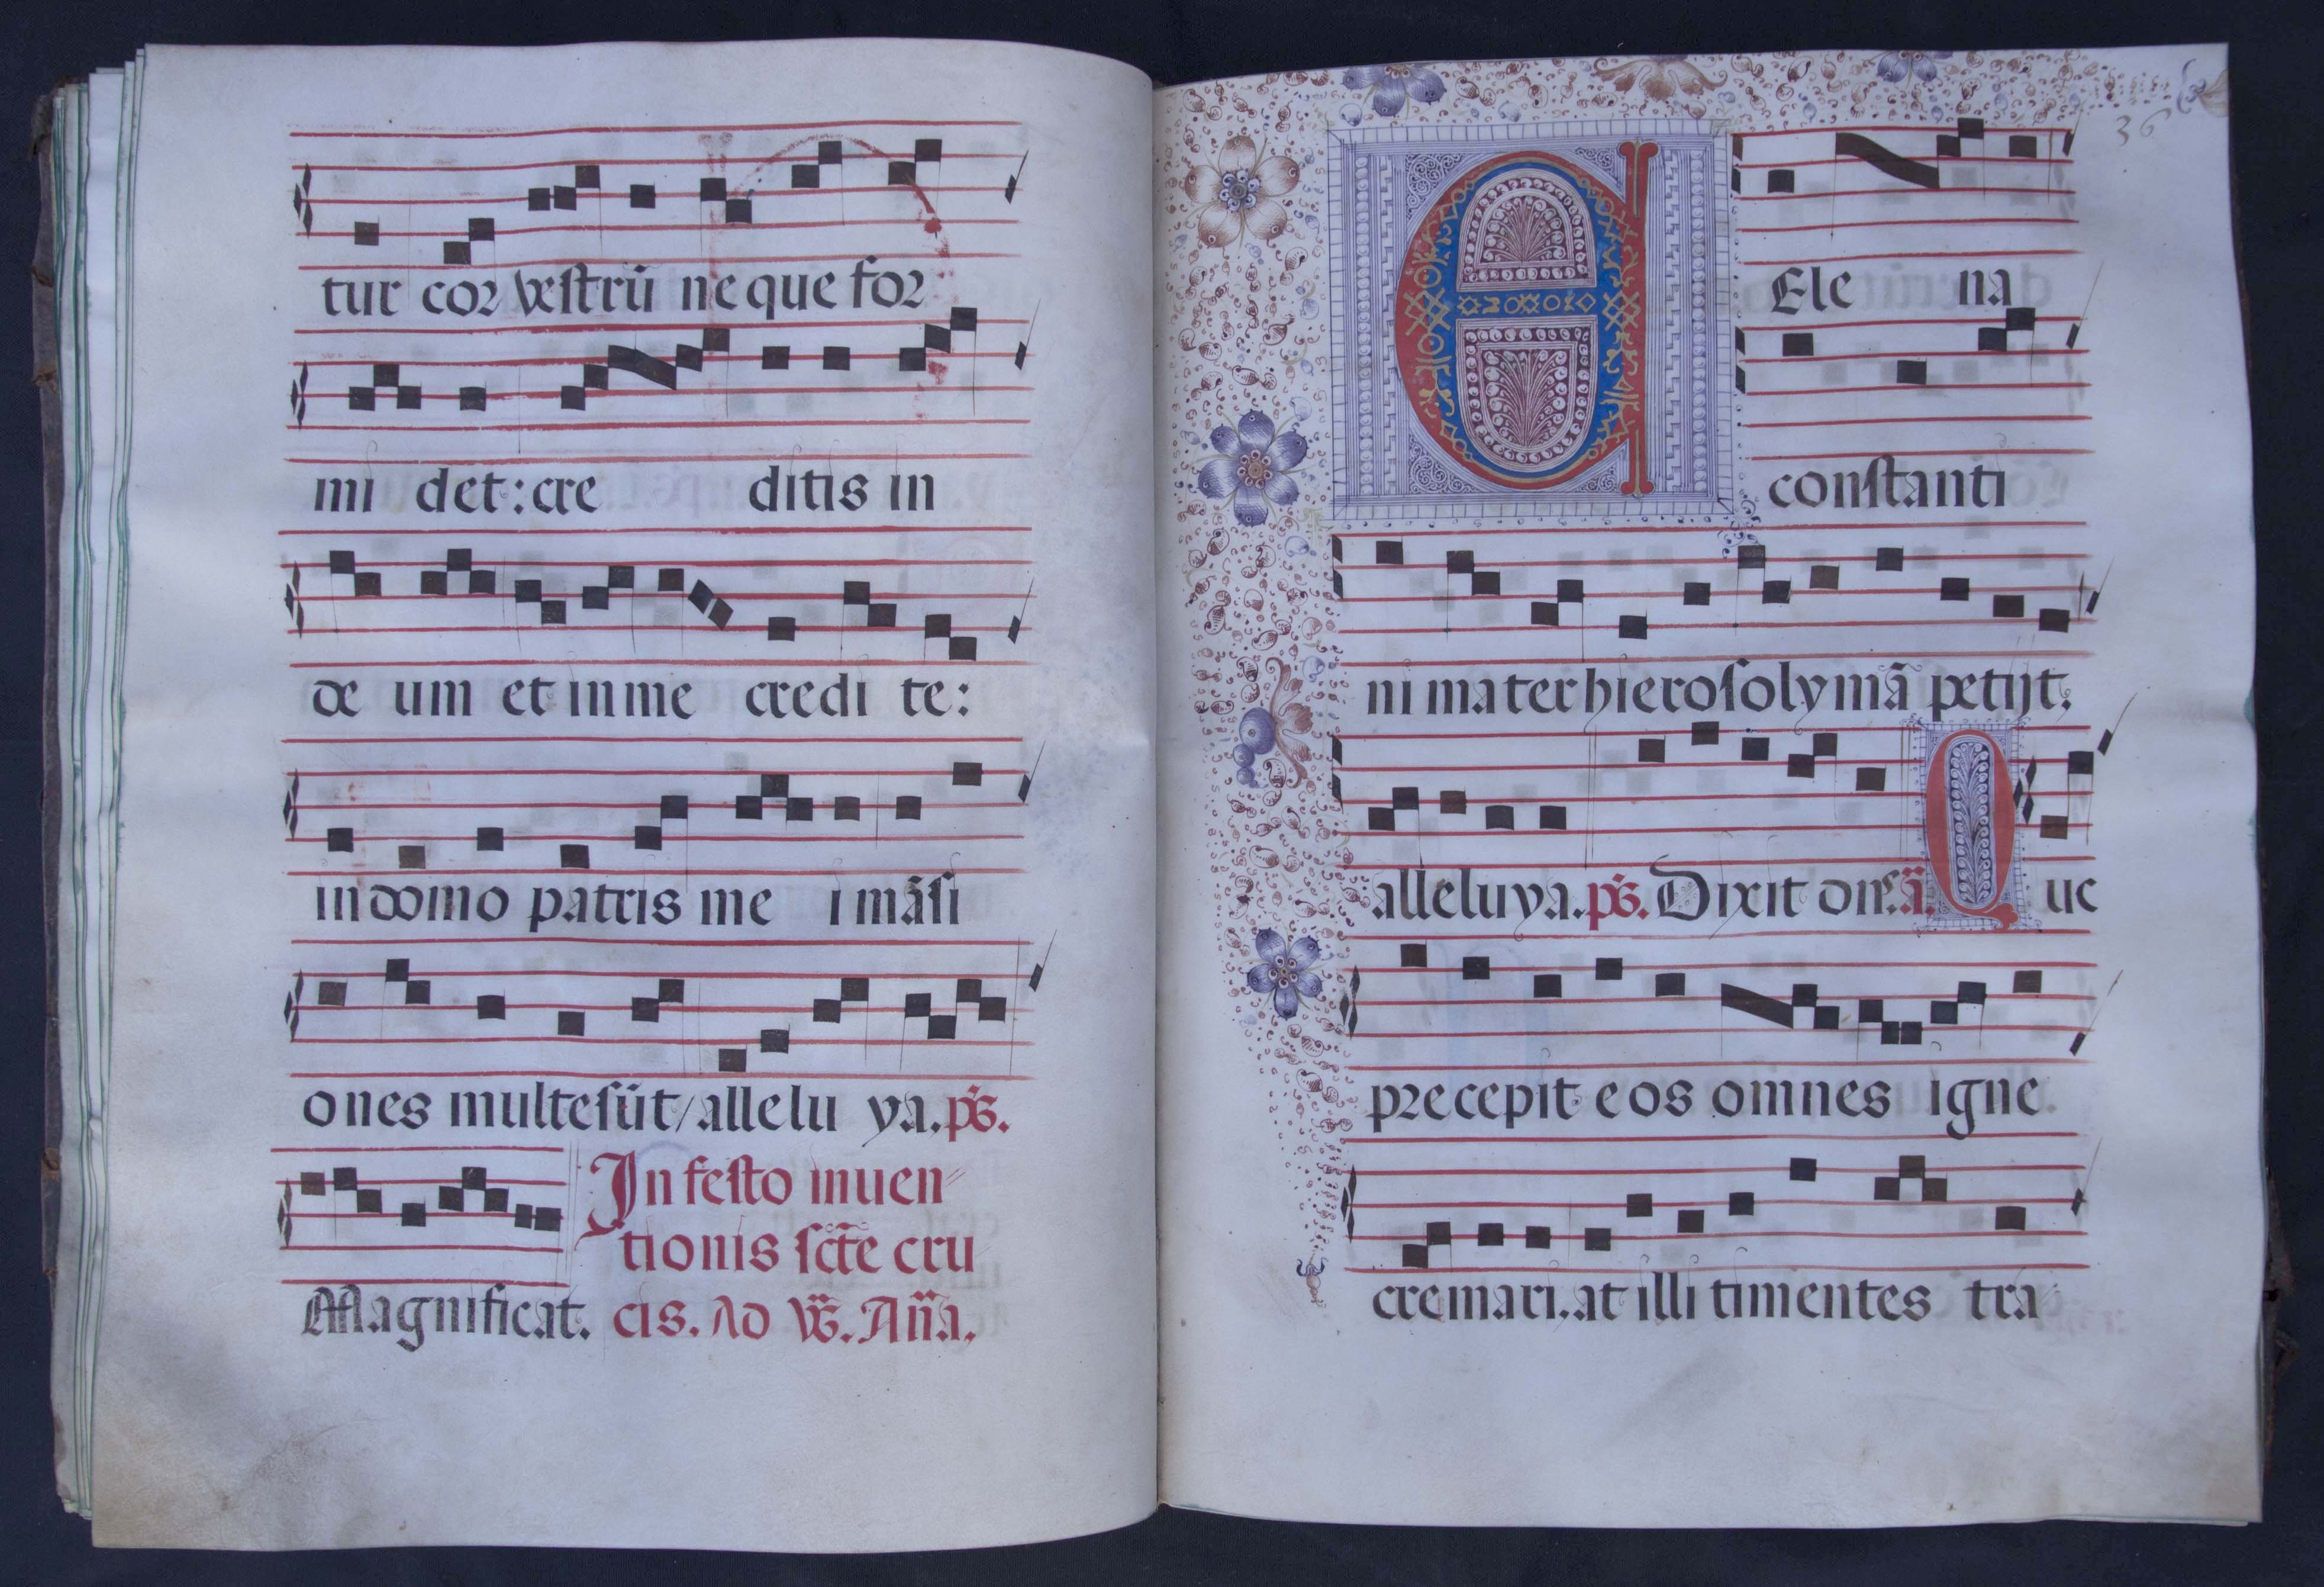 tur cor vestrū neque for
mi det: cre ditis in
de um et in me credi te:
in domo patris me i māsi
ones multe sūt / allelu ya. ps.
In festo inuen
tionis sctē cru
Magnificat. cis. Ad vs. Ana.
36
Ele na
constanti
ni mater hierosolymā petijt:
alleluya. ps. Dixit dns. a. Q ue
precepit eos omnes igne
cremari, at illi timentes tra